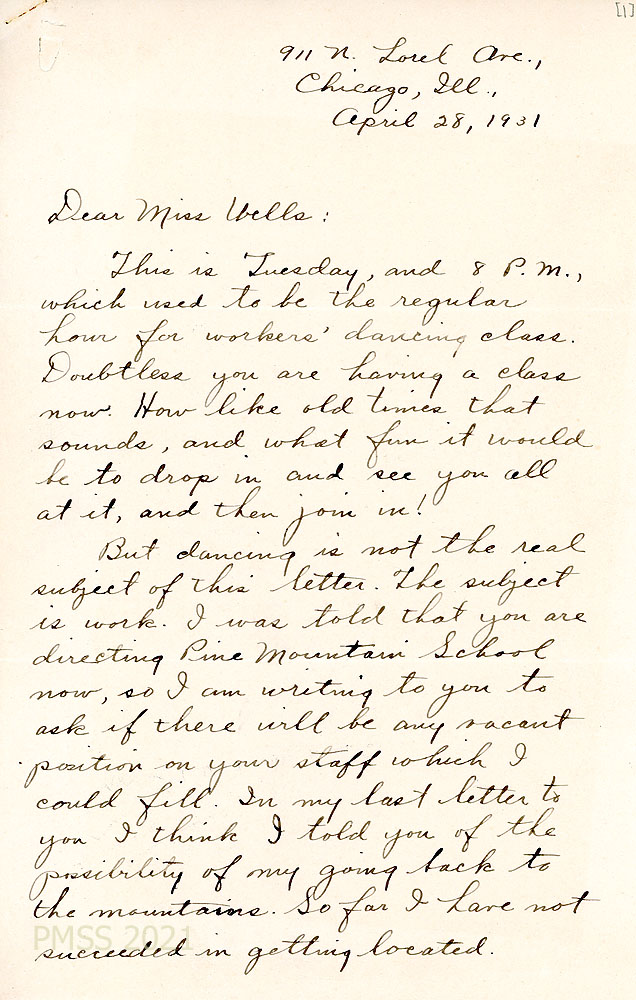 [1]
911 N. Lorel Ave.,
Chicago, Ill.,
April 28, 1931
Dear Miss Wells:
This is Tuesday, and 8 P.M.,
which used to be the regular
hour for workers' dancing class.
Doubtless you are having a class
now. How like old times that
sounds, and what fun it would
be to drop in and see you all
at it, and then join in!
But dancing is not the real
subject of this letter. The subject
is work. I was told that you are
directing Pine Mountain School
now, so I am writing to you to
ask if there will be any vacant
position on your staff which I
could fill. In my last letter to
you I think I told you of the
possibility of my going back to
the mountains. So far I have not
succeeded in getting located.
PMSS 2021